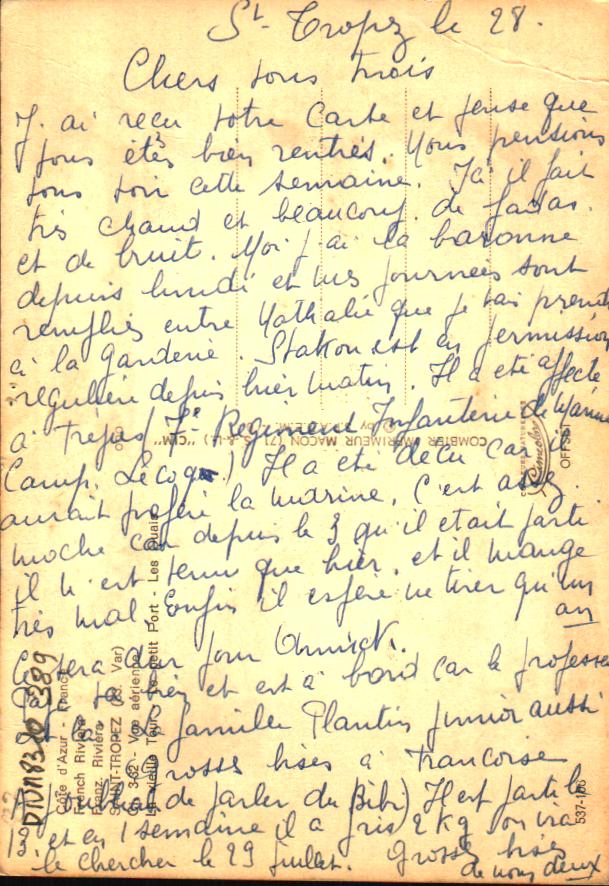 St-Tropez le 28.
Chers tous trois
J'ai reçu votre carte et pense que
vous êtes bien rentrés. Nous pensions
vous voir cette semaine. Ici il fait
très chaud et beaucoup de
et de bruit. Moi j'ai la baronne
depuis lundi et mes journées sont
remplies entre Nathalie que je vais prendre
à la garderie. est en permission
regulière depuis hier matin. Il a été affecté
à Fréjus (7e Regiment Infanterie de Marine
Camp. Lecoq.) Il a été déçu car il
aurait préféré la marine. C'est assez
moche car depuis le 3 qu'il était parti
il n'est venu que hier. et il mange
très mal. Enfin il espère ne tirer qu'un
an
Ce sera dur pour
va bien et est à bord car le professeur
et la famille Plantin junior aussi
grosses bises à Francoise
J'oubliais de parler du Bibi) Il est parti le
13. et en 1 semaine il a pris 2 kg on ira
le chercher le 29 juillet. Grosses bises
de nous deux
DIVN8320 389
Côte d'Azur - France
French Riviera
Franz. Riviera
SAINT-TROPEZ (83. Var)
Vue aérienne
La vieille Tour - Le petit Port - Les Quais
COMBIER IMPRIMEUR MACON (71. S.-&-L.) "CIM"
OFFSET